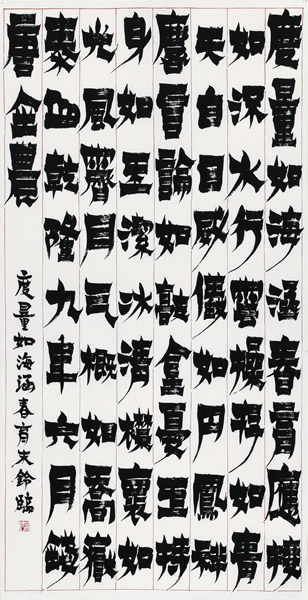 度量如海涵春育應接
如流水行雲操守如青
天白日威儀如丹鳳祥
麟言論如敲金戛玉持
身如玉潔冰清襟懷如
光風霽月氣概如喬嶽
泰山乾隆九年六月錢
唐金農
度量如海涵春育 臨